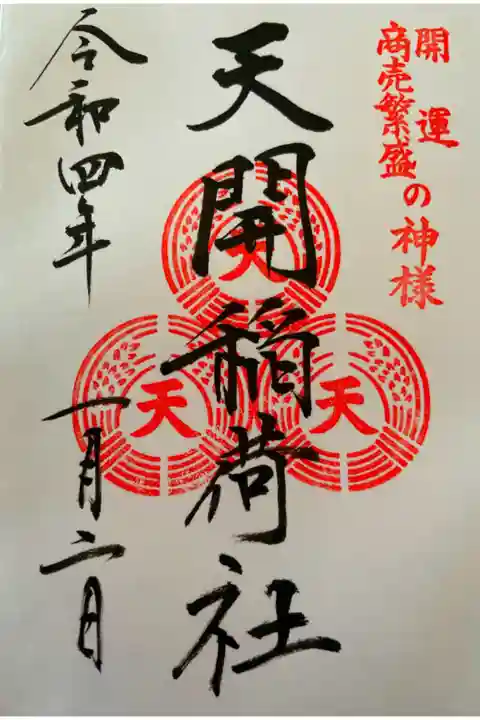 開運
商売繁盛
の神様
天開稲荷社
天
天
天
令和四年
一月二日